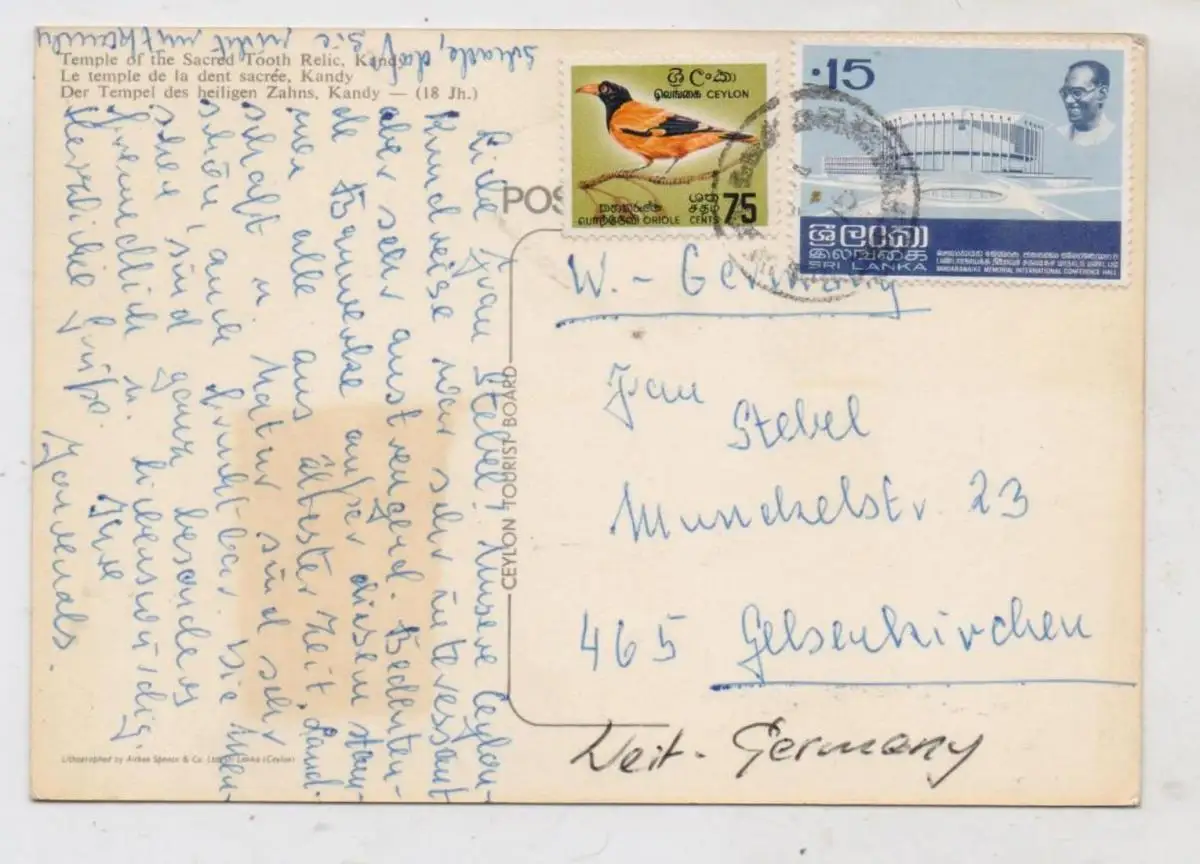 Temple of the Sacred Tooth Relic, Kandy
Le temple de la dent sacrée, Kandy
Der Tempel des heiligen Zahns, Kandy — (18 Jh.)
Schade, daß Sie nicht mitkamen
Liebe Frau Stebel! Unsere Ceylon-
Rundreise war sehr interessant
aber sehr anstrengend. Bedeuten-
de Bauwerke außer diesem stam-
men alle aus ältester Zeit, Land-
schaft u. Natur sind sehr
schön auch fruchtbar. Die Men-
schen sind ganz besonders
freundlich u. liebenswürdig.
Herzliche Grüße Ihre
POS
CEYLON TOURIST BOARD
ශ්‍රී ලංකා
இலங்கை CEYLON
ORIOLE
சதம் CENTS 75
·15
ශ්‍රී ලංකා
இலங்கை
SRI LANKA
BANDARANAIKE MEMORIAL INTERNATIONAL CONFERENCE HALL
W.- Germany
Frau
Stebel
Munckelstr. 23
465 Gelsenkirchen
West-Germany
Lithographed by Aitken Spence & Co. Ltd. Sri Lanka (Ceylon)